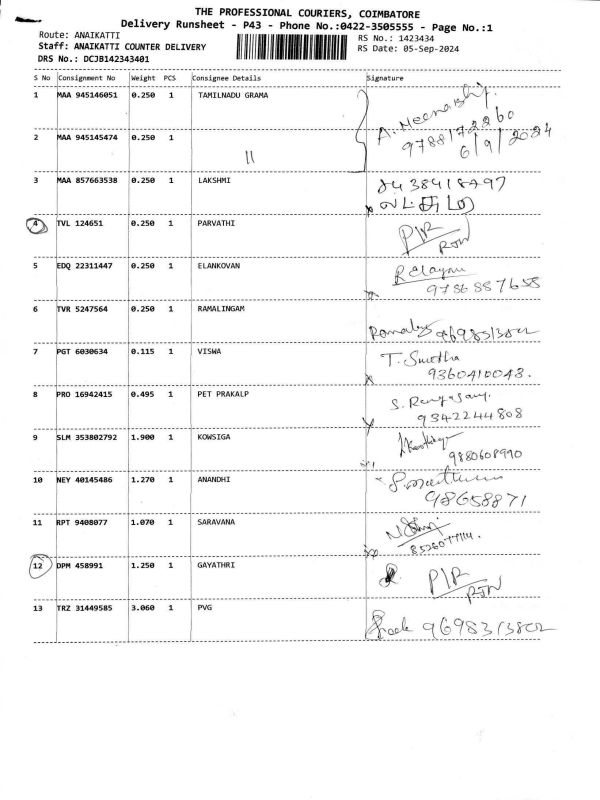 THE PROFESSIONAL COURIERS, COIMBATORE
Delivery Runsheet - P43 - Phone No.:0422-3505555 - Page No.:1
Route: ANAIKATTI
RS No.: 1423434
Staff: ANAIKATTI COUNTER DELIVERY
RS Date: 05-Sep-2024
DRS No.: DCJB142343401
S No Consignment No Weight PCS Consignee Details Signature
1 MAA 945146051 0.250 1 TAMILNADU GRAMA A. Meenakshi
9788172260
2 MAA 945145474 0.250 1 11 6/9/2024
3 MAA 857663538 0.250 1 LAKSHMI 8438418797
லட்சுமி
4 TVL 124651 0.250 1 PARVATHI P/R
RTN
5 EDQ 22311447 0.250 1 ELANKOVAN
9786887655
6 TVR 5247564 0.250 1 RAMALINGAM
9698313802
7 PGT 6030634 0.115 1 VISWA T. Smetha
9360410048.
8 PRO 16942415 0.495 1 PET PRAKALP S. Rangasamy
9342244808
9 SLM 353802792 1.900 1 KOWSIGA
9880608990
10 NEY 40145486 1.270 1 ANANDHI
98658871
11 RPT 9408077 1.070 1 SARAVANA
8526077114.
12 DPM 458991 1.250 1 GAYATHRI P/R
RTN
13 TRZ 31449585 3.060 1 PVG 9698313802